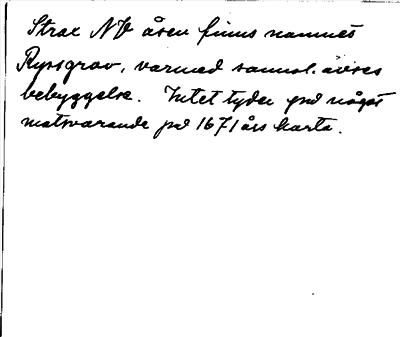 Strax NV åsen finns namnet
Ryssgrav, varmed sannol. avses
bebyggelse. Intet tyder på något
motsvarande på 1671 års karta.